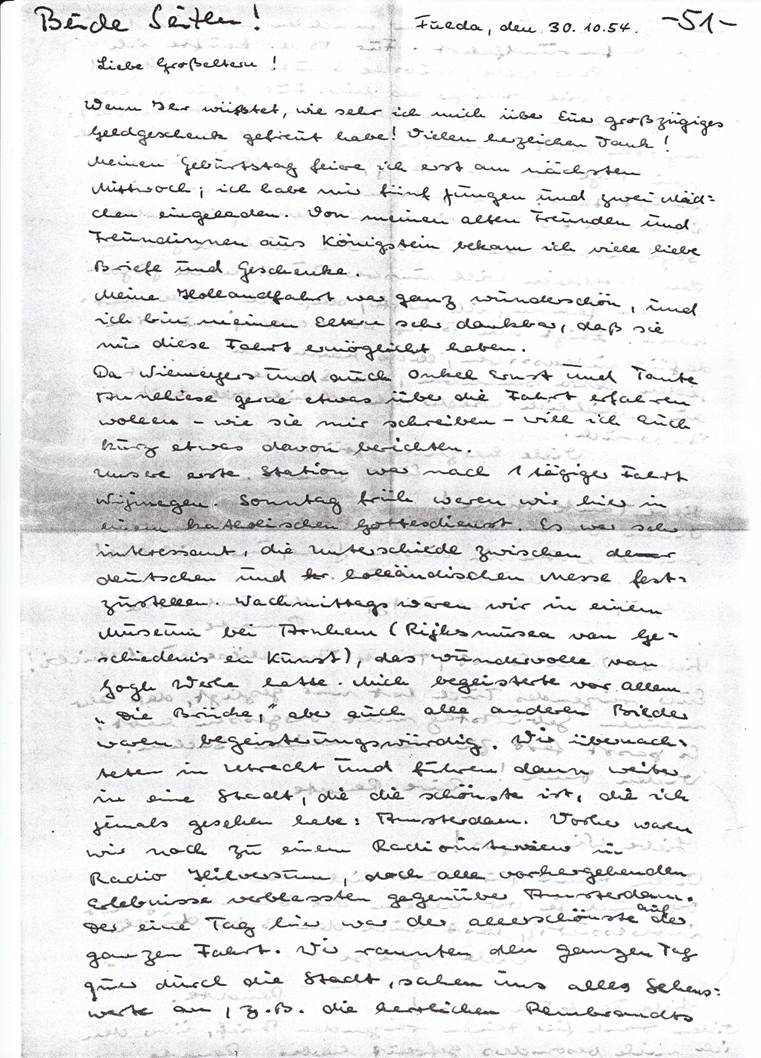 Beide Seiten!
Fulda, den 30.10.54.
-51-
Liebe Großeltern!
Wenn Ihr wüßtet, wie sehr ich mich über Euer großzügiges
Geldgeschenk gefreut habe! Vielen herzlichen Dank!
Meinen Geburtstag feire ich erst am nächsten
Mittwoch; ich habe mir fünf Jungen und zwei Mäd=
chen eingeladen. Von meinen alten Freunden und
Freundinnen aus Königstein bekam ich viele liebe
Briefe und Geschenke.
Meine Hollandfahrt war ganz wunderschön, und
ich bin meinen Eltern sehr dankbar, daß sie
mir diese Fahrt ermöglicht haben.
Da Wiemeyers und auch Onkel Ernst und Tante
Anneliese gerne etwas über die Fahrt erfahren
wollen – wie sie mir schreiben – will ich Euch
kurz etwas davon berichten.
Unsere erste Station war nach 1 tägiger Fahrt
Nijmegen. Sonntag früh waren wir hier in
einem katholischen Gottesdienst. Es war sehr
interessant, die Unterschiede zwischen der
deutschen und der holländischen Messe fest=
zustellen. Nachmittags waren wir in einem
Museum bei Arnhem (Rijksmusea van Ge=
schiedenis en Kunst), das wundervolle van
Gogh Werke hatte. Mich begeisterte vor allem
„die Brücke," aber auch alle anderen Bilder
waren begeisterungswürdig. Wir übernach=
teten in Utrecht und fuhren dann weiter
in eine Stadt, die die schönste ist, die ich
jemals gesehen habe: Amsterdam. Vorher waren
wir noch zu einem Radiointerview in
Radio Hilversum, doch alle vorhergehenden
Erlebnisse verblassten gegenüber Amsterdam.
Der eine Tag hier war der allerschönste auf der
ganzen Fahrt. Wir rannten den ganzen Tag
quer durch die Stadt, sahen uns alles Sehens=
werte an, z.B. die herrlichen Rembrandts